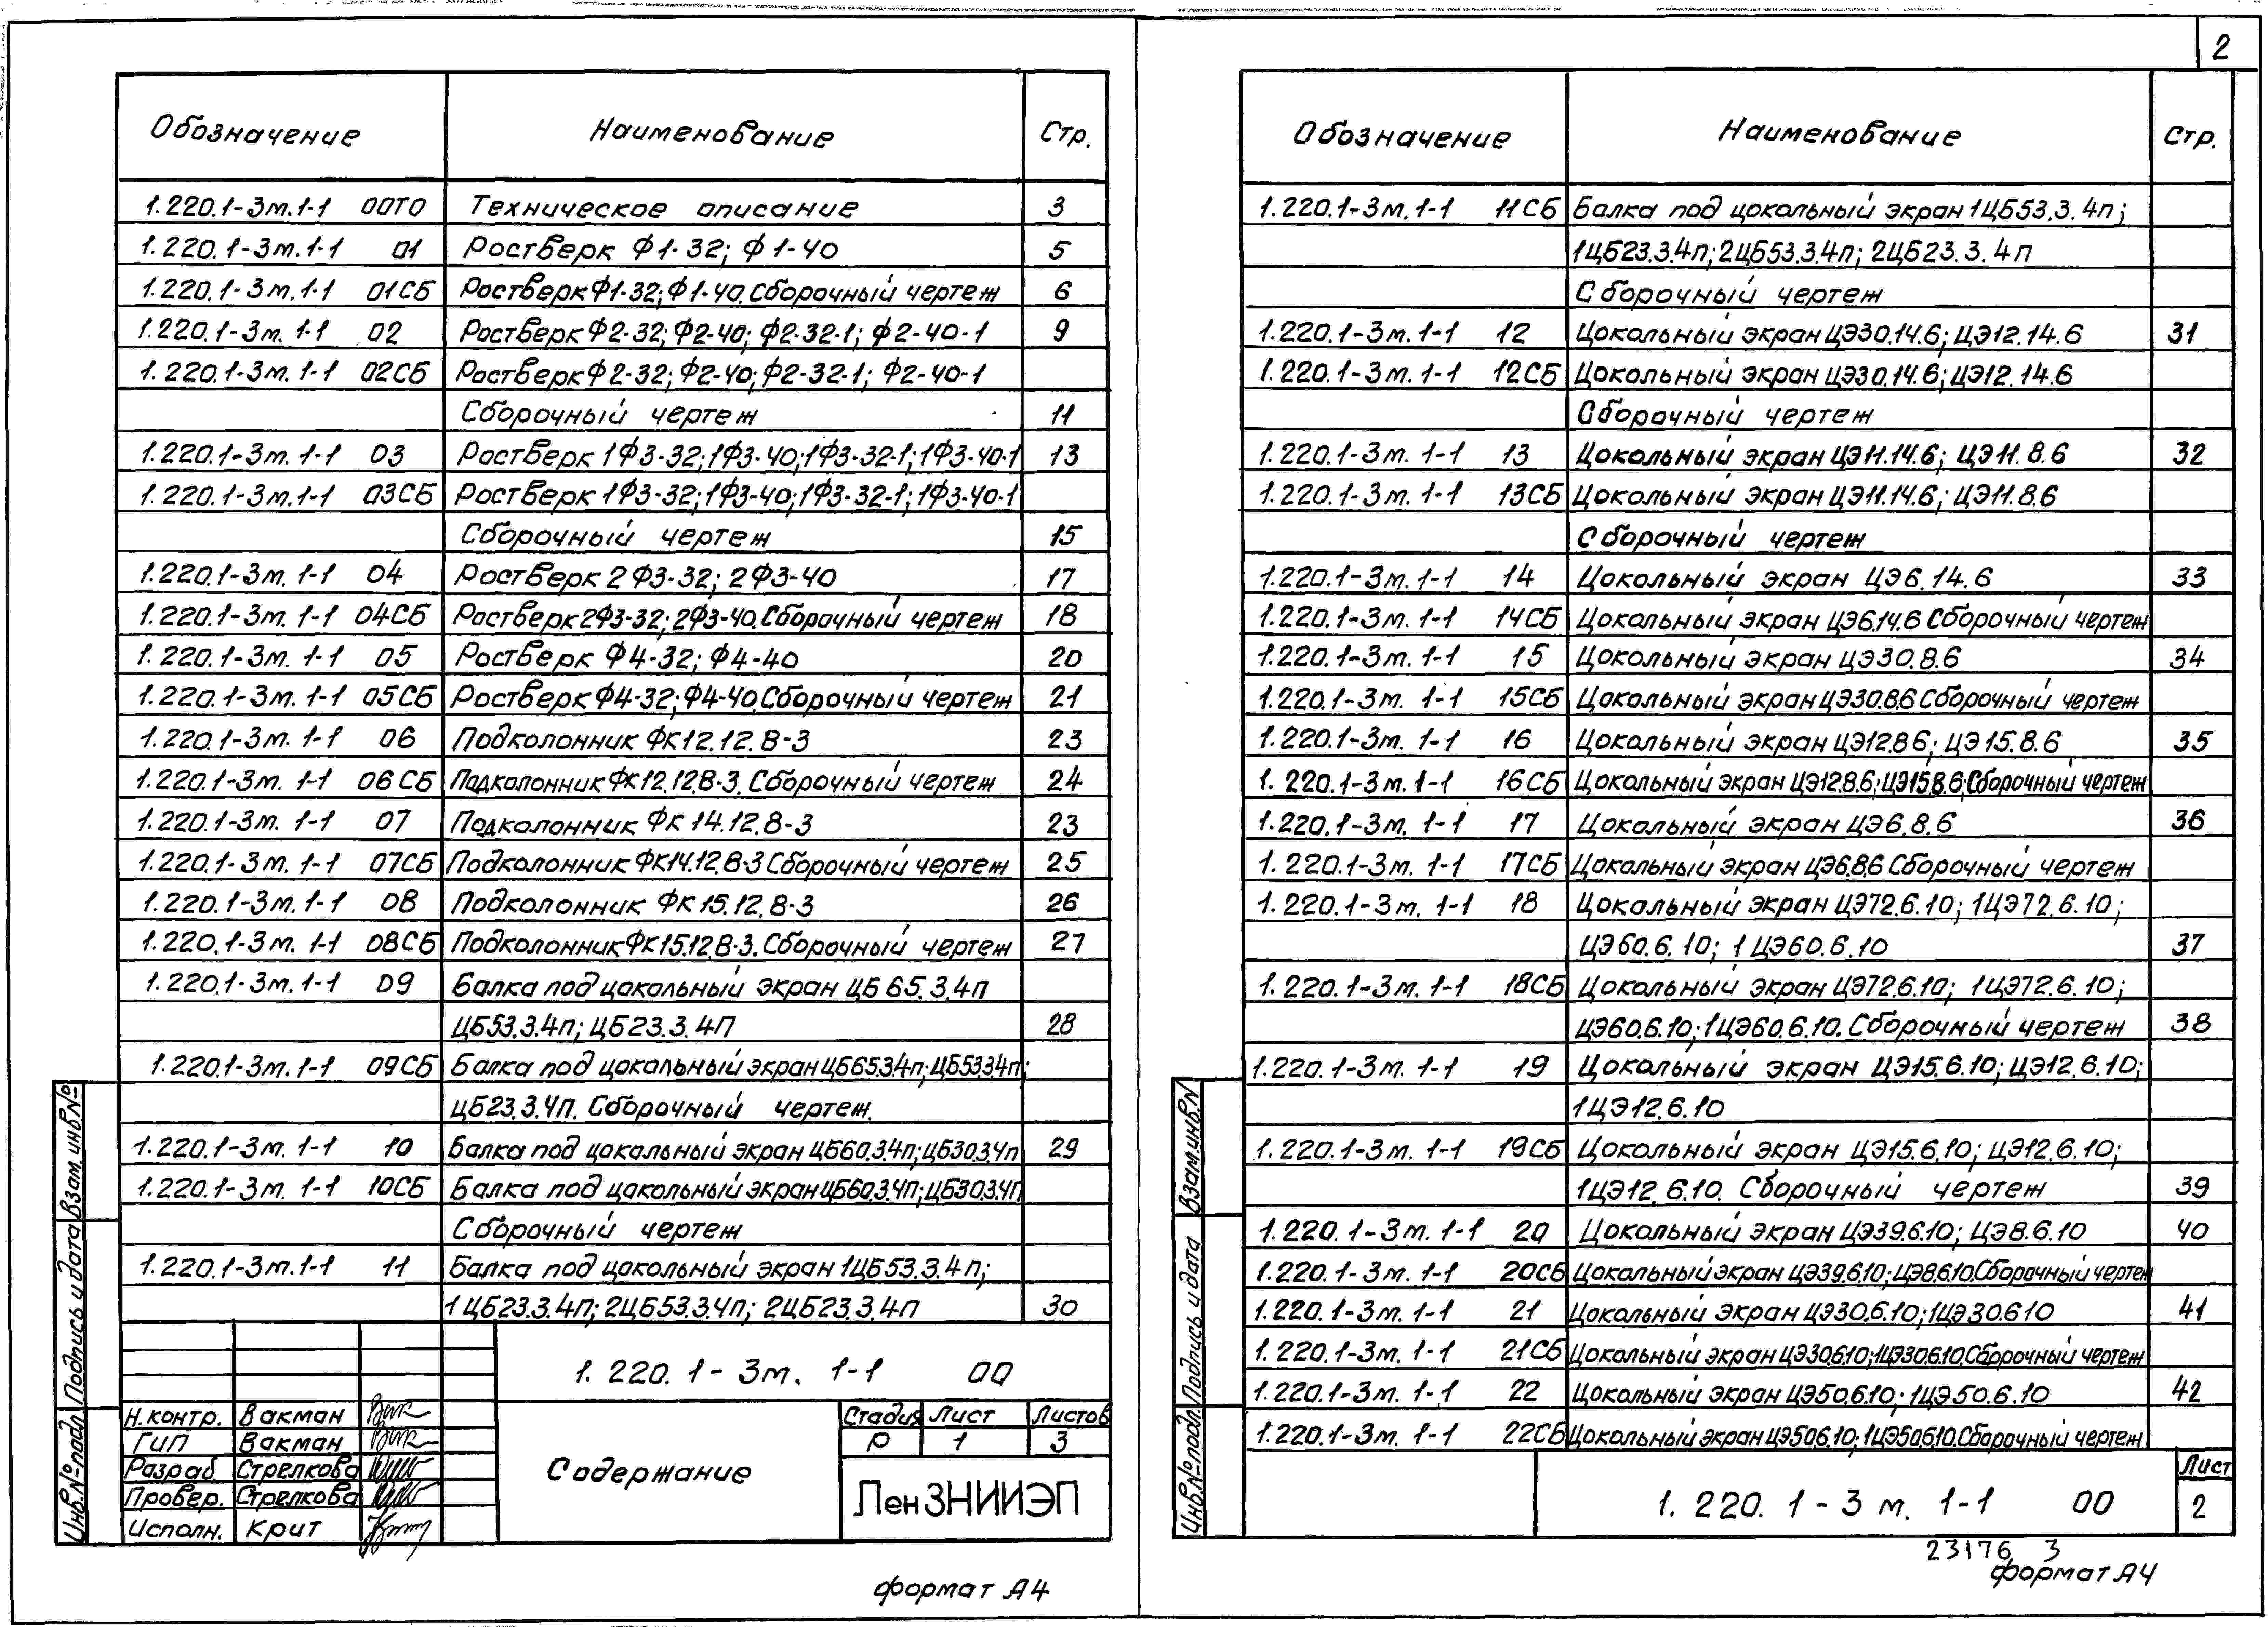 Обозначение Наименование Стр.
1.220.1-3м.1-1 00ТО Техническое описание 3
1.220.1-3м.1-1 01 Ростверк Ф1-32; Ф1-40 5
1.220.1-3м.1-1 01СБ Ростверк Ф1-32; Ф1-40. Сборочный чертеж 6
1.220.1-3м.1-1 02 Ростверк Ф2-32; Ф2-40; Ф2-32-1; Ф2-40-1 9
1.220.1-3м.1-1 02СБ Ростверк Ф2-32; Ф2-40; Ф2-32-1; Ф2-40-1
Сборочный чертеж 11
1.220.1-3м.1-1 03 Ростверк 1Ф3-32; 1Ф3-40; 1Ф3-32-1; 1Ф3-40-1 13
1.220.1-3м.1-1 03СБ Ростверк 1Ф3-32; 1Ф3-40; 1Ф3-32-1; 1Ф3-40-1
Сборочный чертеж 15
1.220.1-3м.1-1 04 Ростверк 2Ф3-32; 2Ф3-40 17
1.220.1-3м.1-1 04СБ Ростверк 2Ф3-32; 2Ф3-40. Сборочный чертеж 18
1.220.1-3м.1-1 05 Ростверк Ф4-32; Ф4-40 20
1.220.1-3м.1-1 05СБ Ростверк Ф4-32; Ф4-40. Сборочный чертеж 21
1.220.1-3м.1-1 06 Подколонник ФК12.12.8-3 23
1.220.1-3м.1-1 06СБ Подколонник ФК12.12.8-3. Сборочный чертеж 24
1.220.1-3м.1-1 07 Подколонник ФК14.12.8-3 23
1.220.1-3м.1-1 07СБ Подколонник ФК14.12.8-3 Сборочный чертеж 25
1.220.1-3м.1-1 08 Подколонник ФК15.12.8-3 26
1.220.1-3м.1-1 08СБ Подколонник ФК15.12.8-3. Сборочный чертеж 27
1.220.1-3м.1-1 09 Балка под цокольный экран ЦБ65.3.4п
ЦБ53.3.4п; ЦБ23.3.4П 28
1.220.1-3м.1-1 09СБ Балка под цокольный экран ЦБ65.3.4п; ЦБ53.3.4п;
ЦБ23.3.4п. Сборочный чертеж.
1.220.1-3м.1-1 10 Балка под цокольный экран ЦБ60.3.4п; ЦБ30.3.4п 29
1.220.1-3м.1-1 10СБ Балка под цокольный экран ЦБ60.3.4п; ЦБ30.3.4п
Сборочный чертеж
1.220.1-3м.1-1 11 Балка под цокольный экран 1ЦБ53.3.4п;
1ЦБ23.3.4п; 2ЦБ53.3.4п; 2ЦБ23.3.4п 30
1.220.1-3м.1-1 00
Н.контр. Вакман
ГИП Вакман
Разраб Стрелкова
Провер. Стрелкова
Исполн. Крит
Содержание
Стадия Лист Листов
Р 1 3
ЛенЗНИИЭП
Инв.№подл. Подпись и дата Взам.инв.№
формат А4
2
Обозначение Наименование Стр.
1.220.1-3м.1-1 11СБ Балка под цокольный экран 1ЦБ53.3.4п;
1ЦБ23.3.4п; 2ЦБ53.3.4п; 2ЦБ23.3.4п
Сборочный чертеж
1.220.1-3м.1-1 12 Цокольный экран ЦЭ30.14.6; ЦЭ12.14.6 31
1.220.1-3м.1-1 12СБ Цокольный экран ЦЭ30.14.6; ЦЭ12.14.6
Сборочный чертеж
1.220.1-3м.1-1 13 Цокольный экран ЦЭ11.14.6; ЦЭ11.8.6 32
1.220.1-3м.1-1 13СБ Цокольный экран ЦЭ11.14.6; ЦЭ11.8.6
Сборочный чертеж
1.220.1-3м.1-1 14 Цокольный экран ЦЭ6.14.6 33
1.220.1-3м.1-1 14СБ Цокольный экран ЦЭ6.14.6 Сборочный чертеж
1.220.1-3м.1-1 15 Цокольный экран ЦЭ30.8.6 34
1.220.1-3м.1-1 15СБ Цокольный экран ЦЭ30.8.6 Сборочный чертеж
1.220.1-3м.1-1 16 Цокольный экран ЦЭ12.8.6; ЦЭ15.8.6 35
1.220.1-3м.1-1 16СБ Цокольный экран ЦЭ12.8.6; ЦЭ15.8.6; Сборочный чертеж
1.220.1-3м.1-1 17 Цокольный экран ЦЭ6.8.6 36
1.220.1-3м.1-1 17СБ Цокольный экран ЦЭ6.8.6 Сборочный чертеж
1.220.1-3м.1-1 18 Цокольный экран ЦЭ72.6.10; 1ЦЭ72.6.10;
ЦЭ60.6.10; 1ЦЭ60.6.10 37
1.220.1-3м.1-1 18СБ Цокольный экран ЦЭ72.6.10; 1ЦЭ72.6.10;
ЦЭ60.6.10; 1ЦЭ60.6.10. Сборочный чертеж 38
1.220.1-3м.1-1 19 Цокольный экран ЦЭ15.6.10; ЦЭ12.6.10;
1ЦЭ12.6.10
1.220.1-3м.1-1 19СБ Цокольный экран ЦЭ15.6.10; ЦЭ12.6.10;
1ЦЭ12.6.10. Сборочный чертеж 39
1.220.1-3м.1-1 20 Цокольный экран ЦЭ39.6.10; ЦЭ8.6.10 40
1.220.1-3м.1-1 20СБ Цокольный экран ЦЭ39.6.10; ЦЭ8.6.10. Сборочный чертеж
1.220.1-3м.1-1 21 Цокольный экран ЦЭ30.6.10; 1ЦЭ30.6.10 41
1.220.1-3м.1-1 21СБ Цокольный экран ЦЭ30.6.10; 1ЦЭ30.6.10. Сборочный чертеж
1.220.1-3м.1-1 22 Цокольный экран ЦЭ50.6.10; 1ЦЭ50.6.10 42
1.220.1-3м.1-1 22СБ Цокольный экран ЦЭ50.6.10; 1ЦЭ50.6.10. Сборочный чертеж
1.220.1-3м.1-1 00
Лист
2
Инв.№подл. Подпись и дата Взам.инв.N
23176 3
формат А4